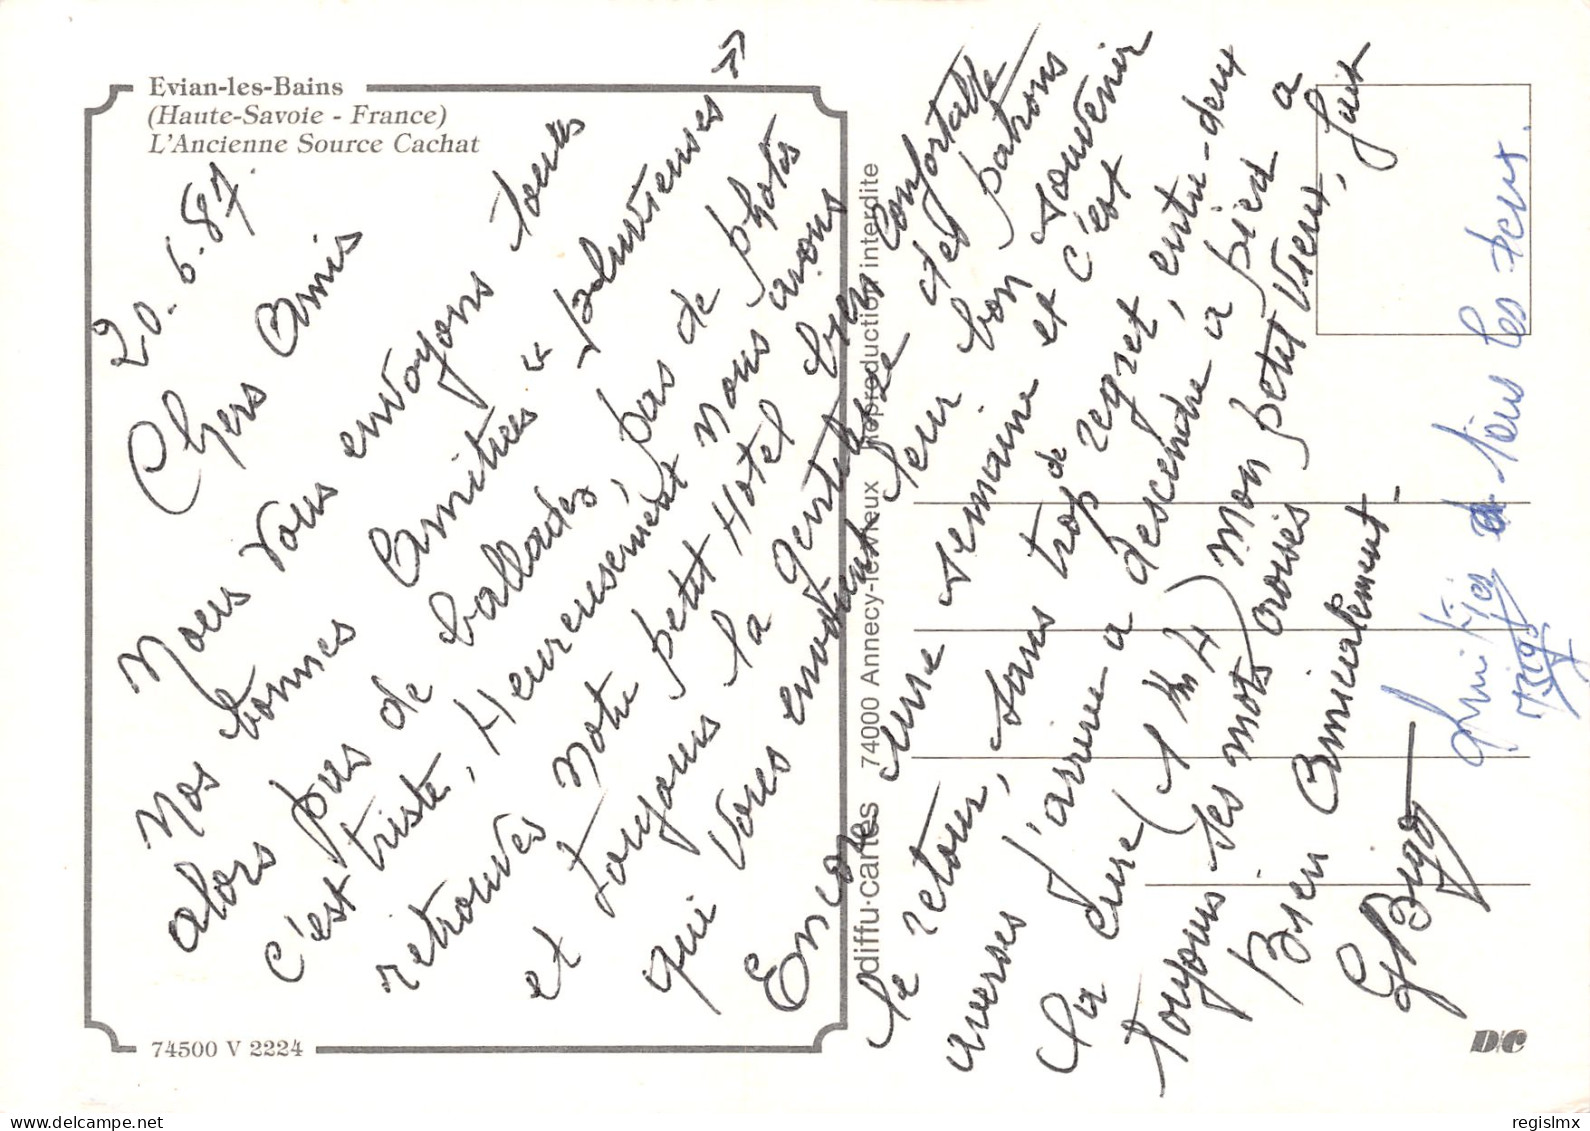 Evian-les-Bains
(Haute-Savoie - France)
L'Ancienne Source Cachat
20.6.87.
Chers Amis
Nous vous envoyons toutes
nos bonnes Amitiés "pluvieuses"
alors pas de ballades, pas de photos
c'est triste, Heureusement nous avons
retrouvés notre petit Hotel bien confortable
et toujours la gentillesse des patrons
qui vous envoient leur bon souvenir
Encore une semaine et c'est
le retour, sans trop de regret, entre-deux
averses j'arrive a descendre a pied a
la cure (1 km 4) mon petit vieux, fait
toujours ses mots croisés
Bien Amicalement -
G Bigot
Amitiés a tous les deux.
diffu-cartes 74000 Annecy-le-Vieux Reproduction interdite
74500 V 2224
D/C
regisImx